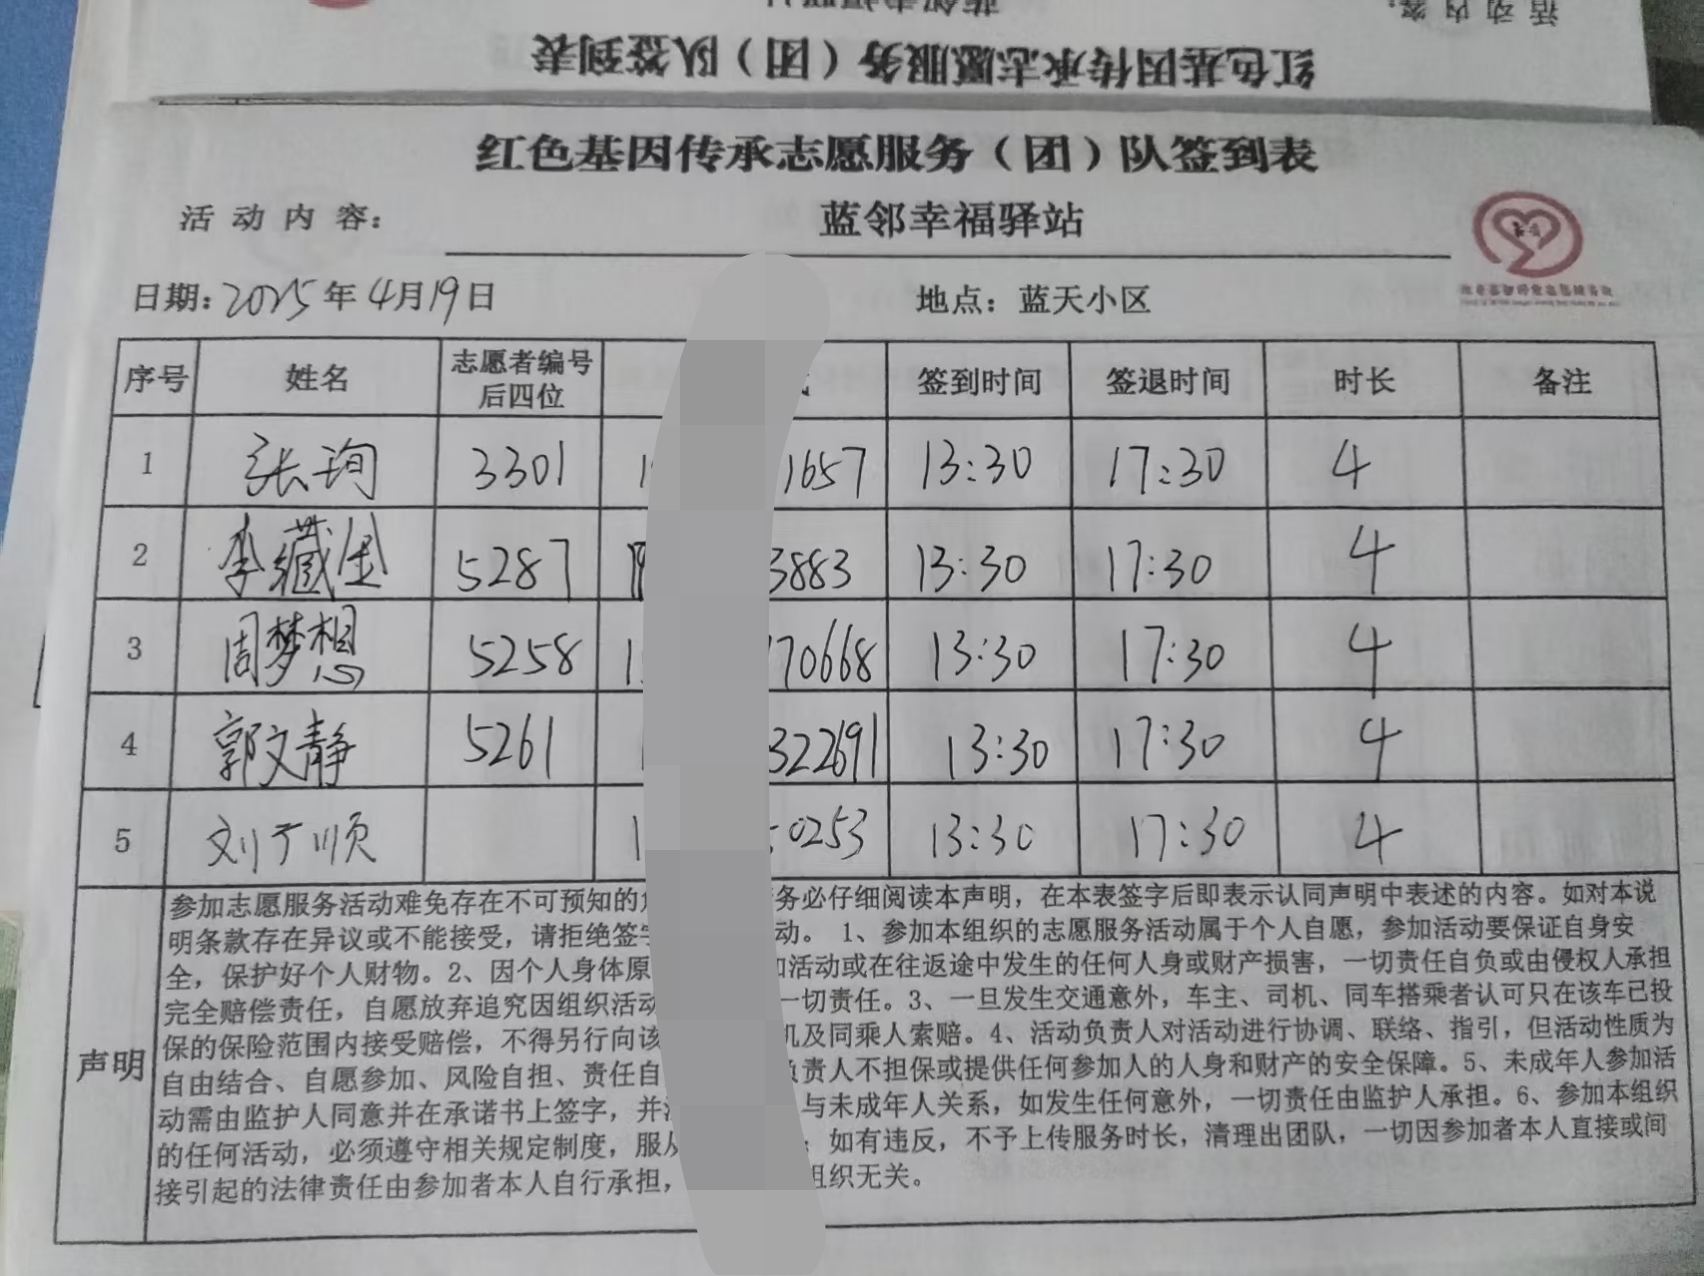 活动内容：
红色基因传承志愿服务（团）队签到表
红色基因传承志愿服务（团）队签到表
活动内容： 蓝邻幸福驿站
日期：2025年4月19日 地点：蓝天小区
序号 姓名 志愿者编号后四位 签到时间 签退时间 时长 备注
1 张珣 3301 1 1657 13:30 17:30 4
2 李藏金 5287 19 3883 13:30 17:30 4
3 周梦想 5258 1 70668 13:30 17:30 4
4 郭文静 5261 1 322691 13:30 17:30 4
5 刘广顺 1 0253 13:30 17:30 4
声明
参加志愿服务活动难免存在不可预知的 务必仔细阅读本声明，在本表签字后即表示认同声明中表述的内容。如对本说
明条款存在异议或不能接受，请拒绝签字 动。1、参加本组织的志愿服务活动属于个人自愿，参加活动要保证自身安
全，保护好个人财物。2、因个人身体原 活动或在往返途中发生的任何人身或财产损害，一切责任自负或由侵权人承担
完全赔偿责任，自愿放弃追究因组织活动 一切责任。3、一旦发生交通意外，车主、司机、同车搭乘者认可只在该车已投
保的保险范围内接受赔偿，不得另行向该 机及同乘人索赔。4、活动负责人对活动进行协调、联络、指引，但活动性质为
自由结合、自愿参加、风险自担、责任自 负责人不担保或提供任何参加人的人身和财产的安全保障。5、未成年人参加活
动需由监护人同意并在承诺书上签字，并 与未成年人关系，如发生任何意外，一切责任由监护人承担。6、参加本组织
的任何活动，必须遵守相关规定制度，服从 如有违反，不予上传服务时长，清理出团队，一切因参加者本人直接或间
接引起的法律责任由参加者本人自行承担， 组织无关。